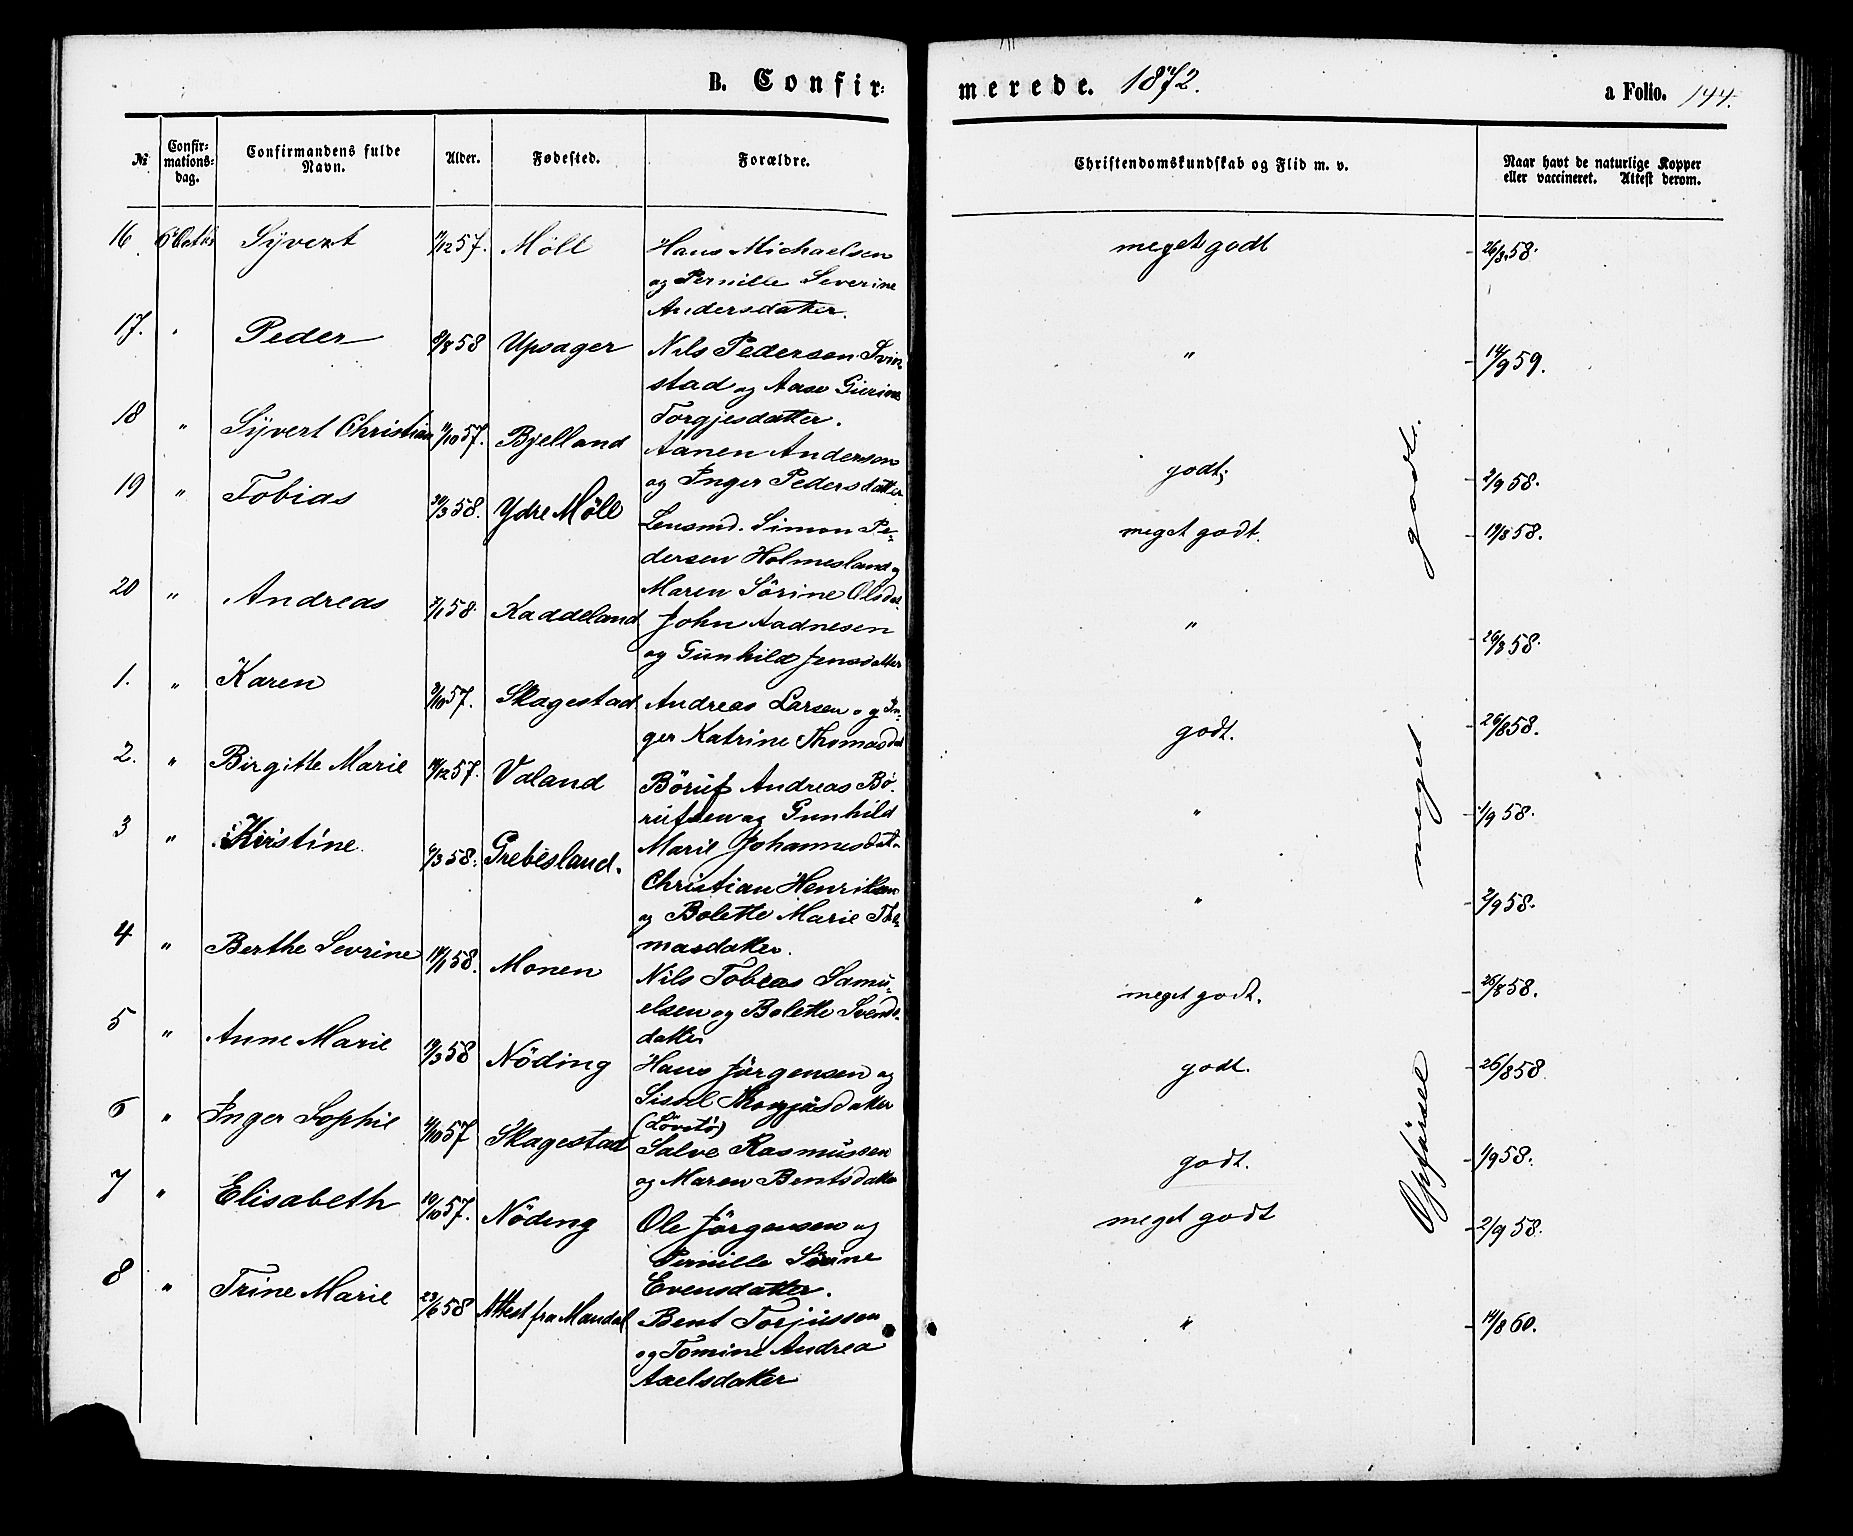 B. Confir-
merede. 1872.
a Folio. 144.
№
Confir-
mations-
dag.
Confirmandens fulde
Navn.
Alder.
Fødested.
Forældre.
Christendomskundskab og Flid m. v.
Naar havt de naturlige Kopper
eller vaccineret. Attest derom.
16 6 Octbr Syvert /12 57. Möll Hans Michaelsen meget godt 26/8 58.
og Pernille Severine
Andersdatter.
17. " Peder 8/8 58 Upsager Nils Pedersen Svin- " 14/9 59.
stad og Aase Gurine
Torgjesdatter.
18 " Syvert Christian 11/10 57. Bjelland Aanen Andersen godt; 2/9 58.
og Inger Pedersdatter
19 " Tobias 20/3 58. Ydre Möll Lensmd. Simon Pe- meget godt. 19/8 58.
dersen Holmesland og
Maren Sörine Olsdat.
20 " Andreas 7/1 58. Kaddeland John Aadnesen " 26/8 58.
og Gunhild Jensdatter
1. " Karen 3/10 57. Skagestad Andreas Larsen og In- godt. 26/8 58.
ger Katrine Thomasdat
2. " Birgitte Marie 14/12 57. Valand Böruf Andreas Bö- " 1/9 58.
rufsen og Gunhild
Marie Johannesdat.
3 " Kirstine 6/3 58. Grebesland. Christian Henriksen " 2/9 58.
og Bolette Marie Tho-
masdatter.
4 " Berthe Sevrine 14/1 58. Monen Nils Tobias Samu- meget godt. 26/8 58.
elsen og Bolette Svends-
datter
5 " Anne Marie 19/3 58 Nöding Hans Jörgensen og godt. 26/8 58
Sissel Thorgjusdatter
(Lövstö)
6 " Inger Sophie 4/10 57 Skagestad Salve Rasmussen godt. 1/9 58.
og Maren Bentsdatter
7 " Elisabeth 10/10 57. Nöding Ole Jörgensen og meget godt 2/9 58.
Pernille Sirine
Evensdatter.
8 " Trine Marie 23/6 58 Attest fra Mandal Bent Torjussen " 14/8 60.
og Tomine Andrea
Axelsdatter
Opförsel meget godt.